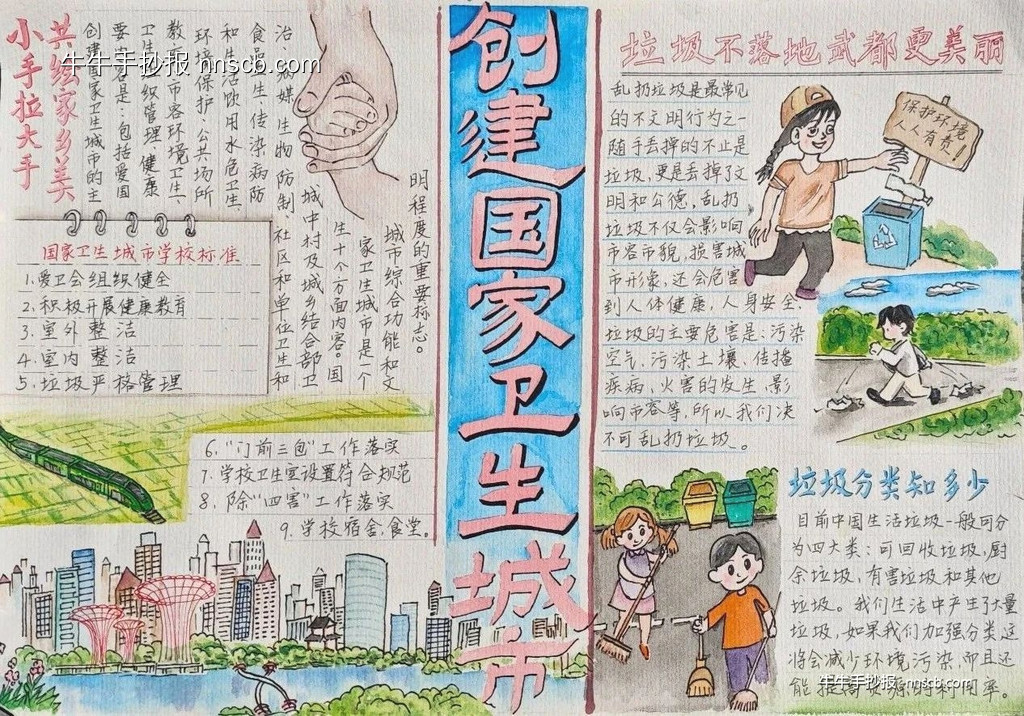 小手拉大手
共绘家乡美
创建国家卫生城市的主
要内容是:包括爱国
卫生组织管理、健康
教育、市容环境卫生、
环境保护、公共场所
和生活饮用水卫生、
食品卫生、传染病防
治、病媒生物防制、社区和单位卫生和
城中村及城乡结合部卫
生十个方面内容。国
家卫生城市是一个
城市综合功能和文
明程度的重要标志。
牛牛手抄报 nnscb.com
国家卫生城市学校标准
1.爱卫会组织健全
2.积极开展健康教育
3.室外整洁
4.室内整洁
5.垃圾严格管理
6.“门前三包”工作落实
7.学校卫生室设置符合规范
8.除“四害”工作落实
9.学校宿舍,食堂。
创建国家卫生城市
垃圾不落地武都更美丽
乱扔垃圾是最常见
的不文明行为之一
随手丢掉的不止是
垃圾,更是丢掉了文
明和公德,乱扔
垃圾不仅会影响
市容市貌,损害城
市形象,还会危害
到人体健康,人身安全,
垃圾的主要危害是:污染
空气,污染土壤,传播
疾病,火害的发生,影
响市容等,所以我们决
不可乱扔垃圾。
保护环境
人人有责!
垃圾分类知多少
目前中国生活垃圾一般可分
为四大类:可回收垃圾,厨
余垃圾,有害垃圾和其他
垃圾。我们生活中产生了大量
垃圾,如果我们加强分类这
将会减少环境污染,而且还
能提高资源的利用率。
牛牛手抄报 nnscb.com